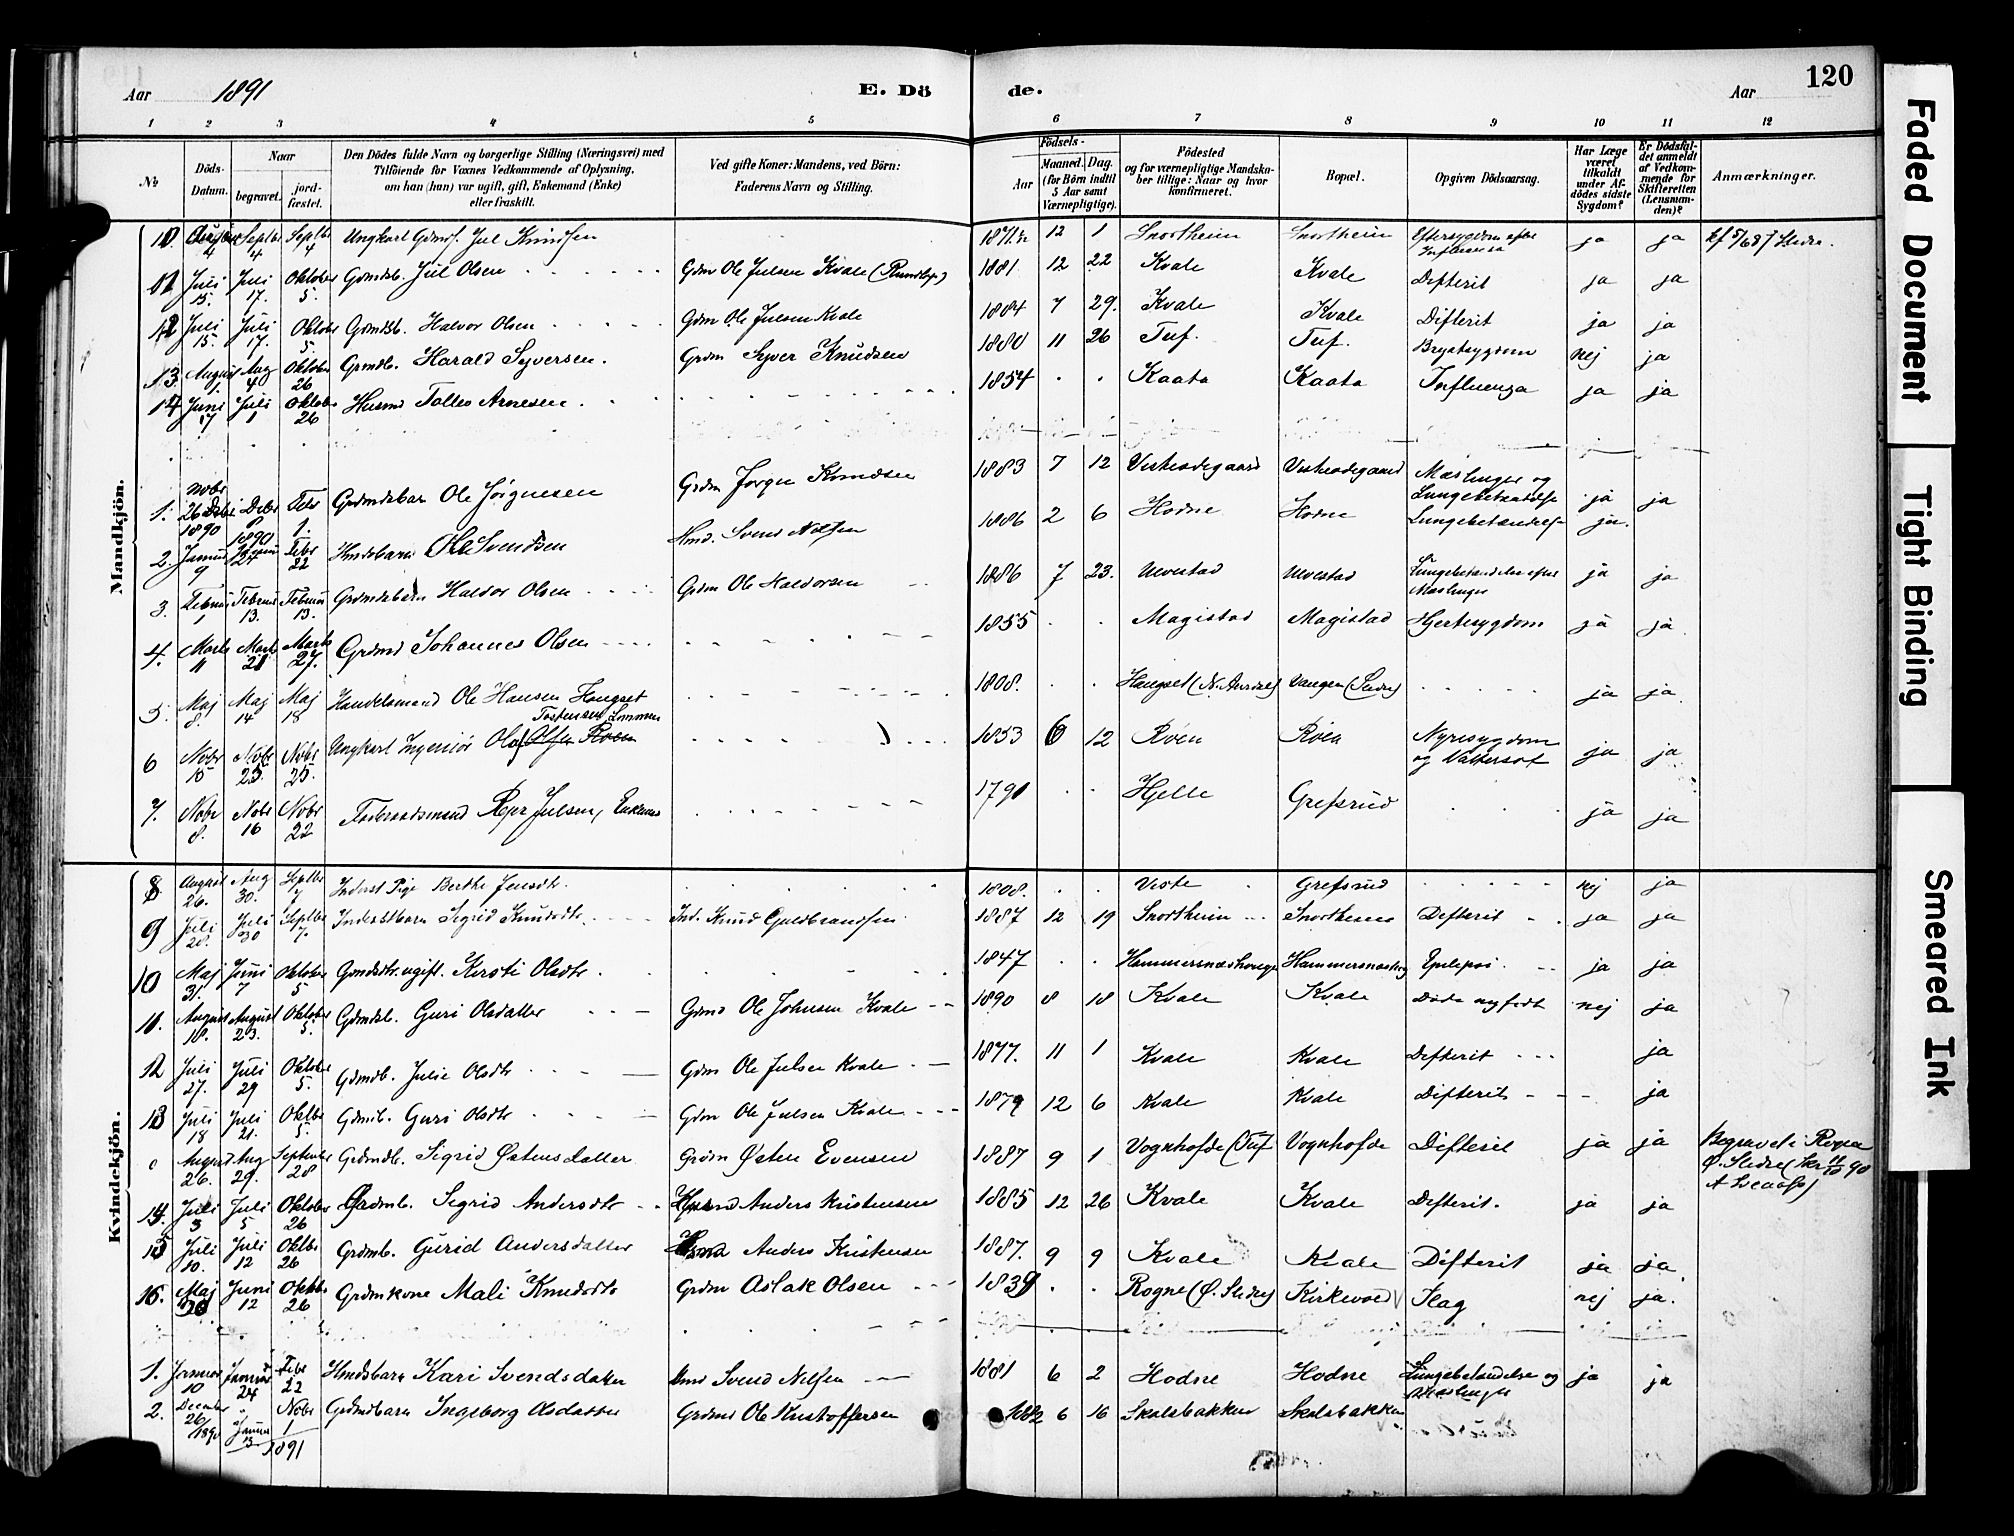 Aar 1891 E. Dö de. Aar 120
1 2 3 4 5 6 7 8 9 10 11 12
No
Döds-Datum.
Naar
begravet.
jord-fæstet.
Den Dödes fulde Navn og borgerlige Stilling (Næringsvei) med
Tilföiende for Voxnes Vedkommende af Oplysning,
om han (hun) var ugift, gift, Enkemand (Enke)
eller fraskilt.
Ved gifte Koner: Mandens, ved Börn:
Faderens Navn og Stilling.
Födsels-
Aar
Maaned. Dag.
(for Börn indtil
5 Aar samt
Værnepligtige).
Födested
og for værnepligtige Mandskaber tillige: Naar og hvor
konfirmeret.
Bopæl.
Opgiven Dödsaarsag.
Har Læge
været
tilkaldt
under Afdödes sidste
Sygdom?
Er Dödsfaldet anmeldt
af Vedkommende for
Skifteretten
(Lensmanden)?
Anmærkninger.
Mandkjön.
Septbr 4 Septbr 4 Ungkarl Jul Knudsen 12 1 Snortheim Snortheim Eftersygdom efter Influensa ja ja
11 Juli 15. Juli 17. Oktober 5. Grmdsb. Jul Olsen Gdm Ole Julsen Kvale 1881 12 22 Kvale Kvale Difterit ja ja
12 Juli 15. Juli 17. Oktober 5. Grmdsb. Halvor Olsen Gdm Ole Julsen Kvale 1884 7 29. Kvale Kvale Difterit ja ja
13. August 1. Aug 4 Oktober 26 Grmdb. Harald Syversen. Grdm Syver Knudsen 1880 11 26 Tuf. Tuf. Brystsygdom nej ja
14 Juni 17 Juli 1 Oktober 26 Husmd Tolleo Arnesen. 1854 Kaata Kaata Influenza ja ja
1. Novbr 26 1890 Debr 8 1890 Febr 1. Grdmdsbarn Ole Jörgensen Grdm Jörgen Knudsen 1883 7 12 Mæslinger og Lungebetændelse ja ja
2. Januar 9 Januar 24 Febr 22 Hmdsbarn Ole Svendsen Hmd. Svend Nilsen 1886 2 6 Hodne Hodne Lungebetændelse ja.
3. Februar 1 Februar 13. Februar 13. Grdmdsbarn Halvor Olsen Grdm Ole Halvorsen 1886 7 23. Ulvestad Ulvestad Lungebetændelse efter Mæslinger ja ja
4. Marts 11 Marts 21 Marts 27. Grdmd Johannes Olsen 1855 Magistad Magistad Hjertesygdom ja ja.
5. Maj 8. Maj 14 Maj 18 Handelsmand Ole Hansen Haugset 1808. Haugset (N. Aurdal) Vangen (Slidre) ja ja.
Tostensen Lommen
6 Novbr 15 Novbr 23. Novbr 25. Ungkarl Ingeniör Olaf Olsen Roen 1853 6 12 Röen Röen Nyresygdom og Vattersot ja ja
7. Novbr 8. Novbr 16 Novbr 22 Föderaadsmand Reyer Julsen, Enkemd 1791 Hjelle Grefsrud ja ja
Kvindekjön.
8 August 26. Aug 30. Septbr 7 Inderst Pige Berthe Jensdtr. 1808. Viste Grefsrud nej ja
9 Juli 28. Juli 30 Septbr 7. Inderstbarn Sigrid Knudsdtr. Ind. Knud Guldbrandsen 1887 12 19 Snortheim Snortheim Difterit ja ja
10 Maj 31. Juni 7 Oktober 5 Gmdsdtr. ugift. Kirsti Olsdtr. 1847 Hammersnæshouge Epilepsi ja ja
11. August 18. August 23. Oktober 5. Gdmdsb. Guri Olsdatter Gdmd Ole Johnsen Kvale 1890 8 18 Kvale Kvale nej ja
12 Juli 27. Juli 29 Oktober 5. Gdmdb. Julie Olsdtr Gdm Ole Julsen Kvale 1877. 11 1 Kvale Kvale Difterit ja
13 Juli 18 Juli 21. Oktbr 5. Gdmb. Guri Olsdtr Gdm Ole Julsen Kvale 1879 12 6 Kvale Kvale Difterit ja
August 26. Aug 29. September 28 Grdmdb. Sigrid Østensdatter Grdm Østen Evensen 1887 9 1 Vognhofde (Tuf Vognhofde Difterit ja ja Begravet i Rogne
Ø. Slidre
14. Juli 3 Juli 5 Oktober 26 Grdmb. Sigrid Andersdtr Anders Kristensen 1885 12 26 Kvale Kvale Difterit. ja ja
15 Juli 10. Juli 12 Oktbr 26 Grdmb. Gurid Andersdatter Anders Kristensen 1887. 9 9 Kvale Kvale Difterit ja ja.
16. Maj Juni 12 Oktbr 26 Grdmkone Mali Knudsdtr Grdm Aslak Olsen 1839 Rogne (Ø. Slidre) Kirkevold Slag nej ja.
1. Januar 10 Januar 24 Febr 22 Hmdsbarn Kari Svendsdatter Hmd Svend Nilsen 1881 6 2 Hodne Hodne Lungebetændelse og Mæslinger ja ja
2. December 26/ 1890 Januar 13 1891 Novbr 1 Grdmdbarn Ingeborg Olsdatter Grdmd Ole Kristoffersen 1882 6 16 Skolsbakken Skolsbakken
Faded Document
Tight Binding
Smeared Ink